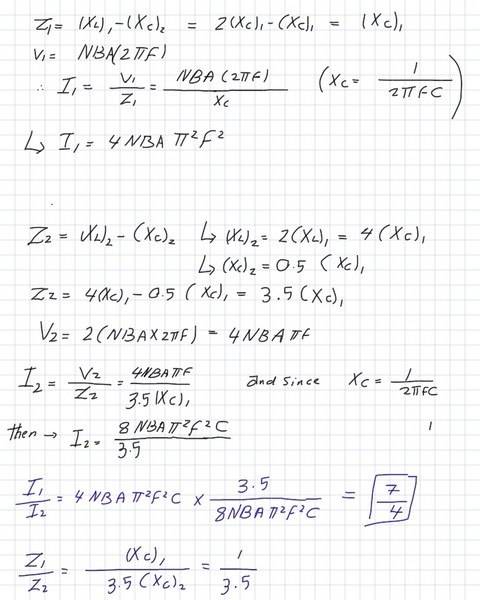 Z₁ = (XL)₁ - (XC)₂ = 2(XC)₁ - (XC)₁ = (XC)₁
V₁ = NBA(2πF)
∴ I₁ = V₁/Z₁ = NBA(2πF)/XC (XC = 1/2πFC)
↳ I₁ = 4NBAπ²F²
Z₂ = (XL)₂ - (XC)₂ ↳ (XL)₂ = 2(XL)₁ = 4(XC)₁
↳ (XC)₂ = 0.5 (XC)₁
Z₂ = 4(XC)₁ - 0.5 (XC)₁ = 3.5(XC)₁
V₂ = 2(NBA×2πF) = 4NBAπF
I₂ = V₂/Z₂ = 4NBAπF/3.5(XC)₁ and since XC = 1/2πFC
then → I₂ = 8NBAπ²F²C/3.5
I₁/I₂ = 4NBAπ²F²C × 3.5/8NBAπ²F²C = 7/4
Z₁/Z₂ = (XC)₁/3.5(XC)₂ = 1/3.5